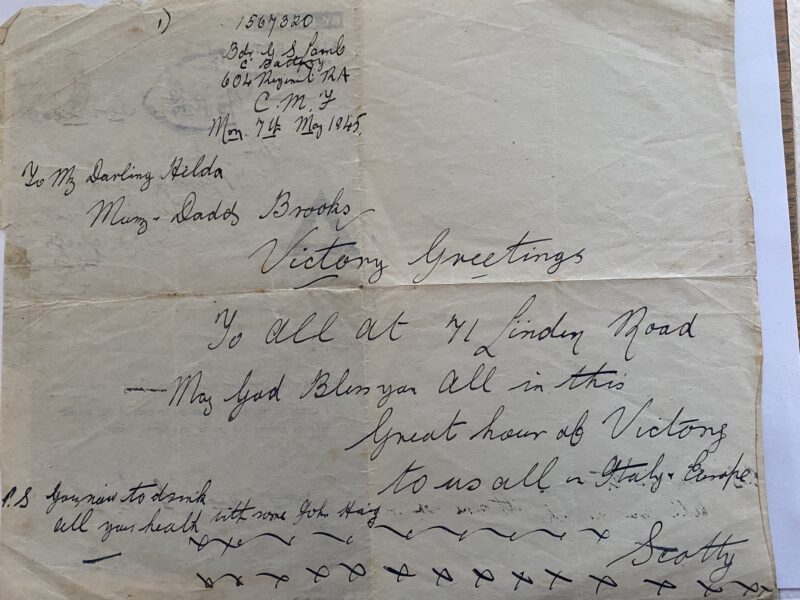 1)
1567320
Bdr G S Lamb
C Battery
604 Regiment RA
C. M. F
Mon. 7th May 1945.
To My Darling Hilda
Mum - Dad Brooks
Victory Greetings
To all at 71 Linden Road
— May God Bless you all in this
Great hour of Victory
to us all in Italy & Europe.
P.S. Going now to drink
all your health with some John Haig
Scotty